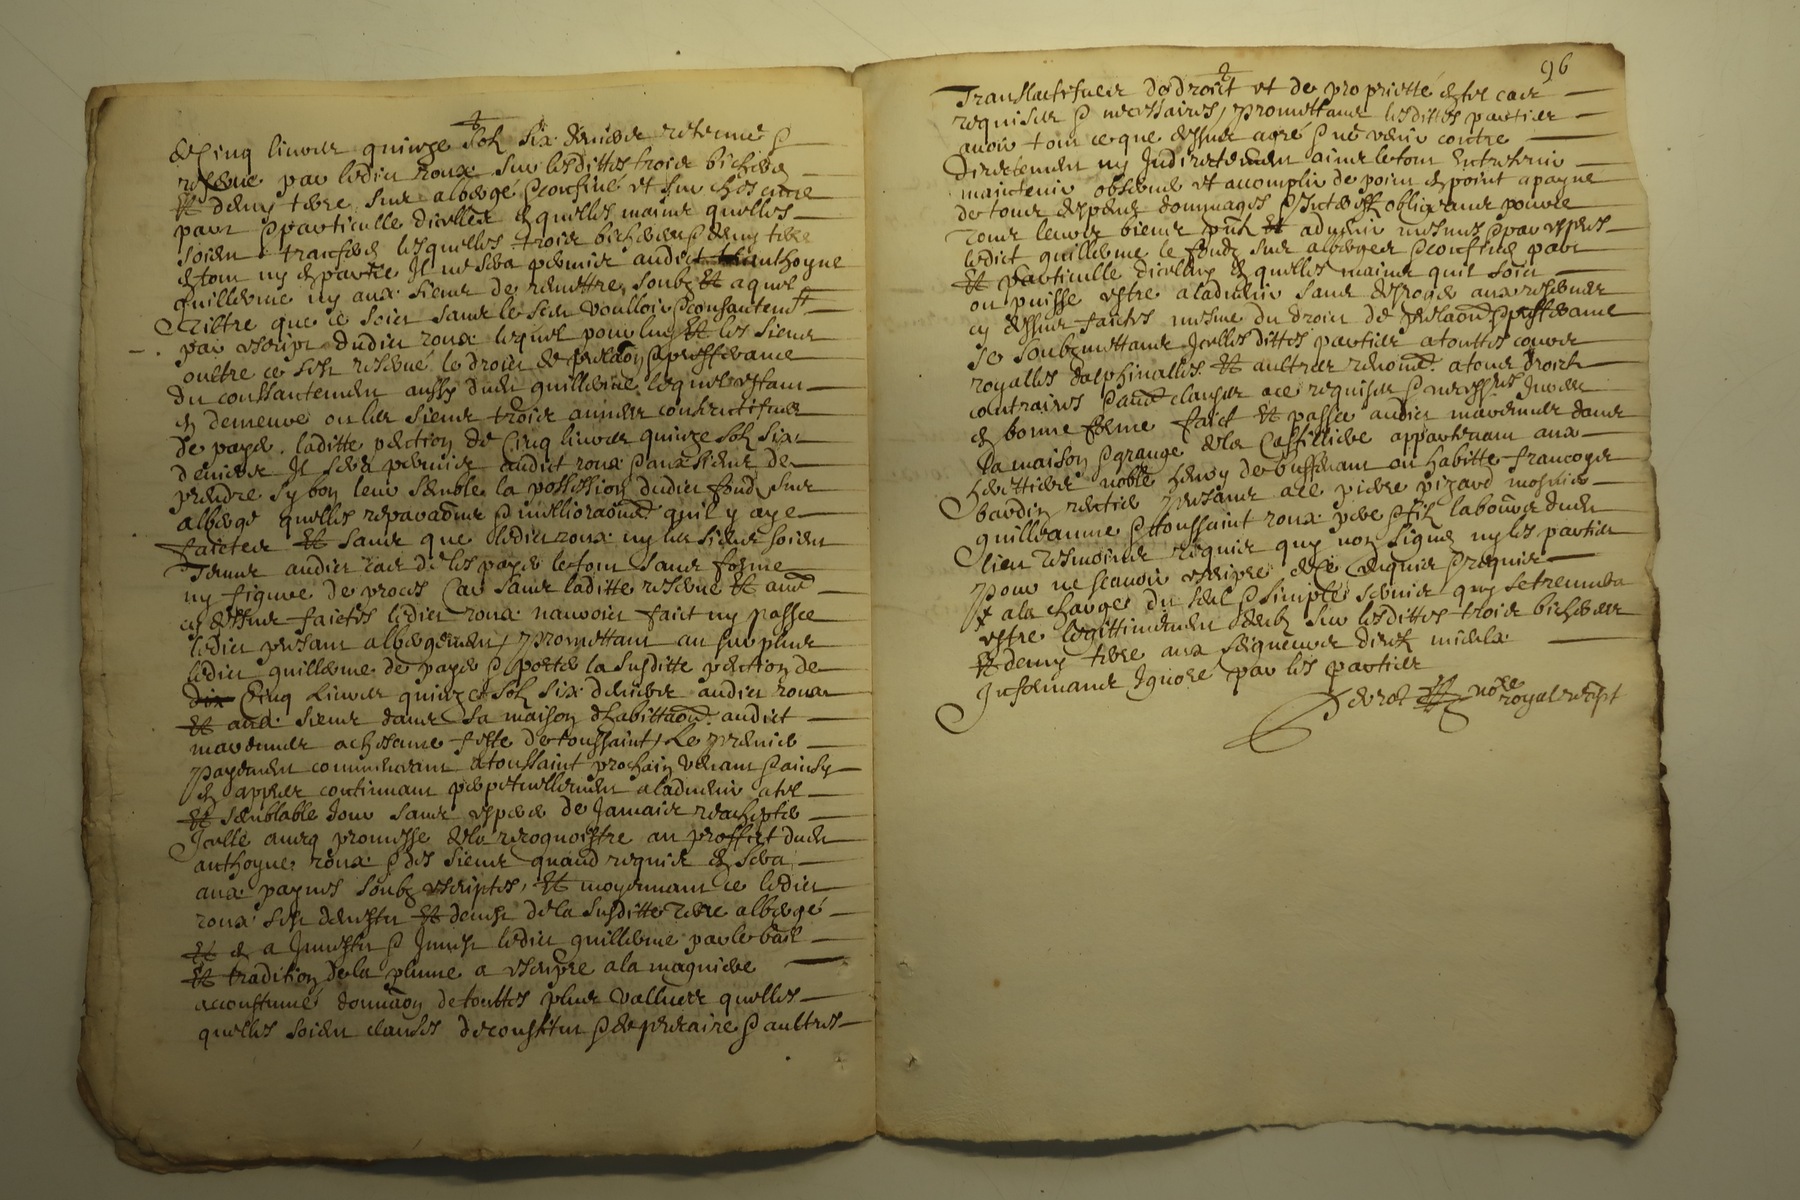 de Cinq livres quinze solz six deniers retenue &
reservé par ledict roux sur lesdittes troies bicherés
Et demy terre sus alberge & confiné et sur chescune
part & particulle dicelles en quelles mains quelles
soient transferé lesquelles troies bicherées & demy terre
en tout ny en partie Il ne sera permis audict anthoyne
guillerme ny aux siens de remettre soubz aquel
tiltre que ce soict sans le sceu voulloir & consantem.t
par escript dudict roux lequel pour luy Et les siens
oultre ce sest reservé le droict de prelaon & preferance
Du consantement aussy dudit guillerme lequel estant
en demeure ou les siens trois annees consecutifves
De payer laditte pention de Cinq livres quinze solz six
deniers Il sera permis audict roux & aux siens de
prendre sy bon leur semble la possession dudict fond sus
albergé quelles reparaons & melliorations quil y aye
faictes Et sans que ledict roux ny les siens soient
Tenus audict cas de les payer le tout sans forme
ny figure de proces Car sans laditte reserve Et aud
cy dessus faictes ledict roux nauroict faict ny passé
ledict presant albergement, promettant au surplus
ledict guillerme de payer & porter la susditte pention de
Cinq livres quinze solz six deniers audict roux
Et aux siens dans sa maison dhabitaon audict
mardennes a chescune feste de toussaint, Le premier
payement commencant a toussaint prochain venant & ainsy
en appres continuant perpetuellement aladvenir a tel
Et semblable Jour sans espoir de Jamais reachepter
Icelle avec promesse de la recognoistre au proffict dudit
anthoyne roux & des siens quand requis en sera
aux paynes soubz escriptes, Et moyennant ce ledict
roux sest demestu Et demest de la susditte terre albergé
Et en a Jnvestu & Jnvest ledict guillerme par le bail
Et tradition de la plume a escripre a la magniere
accoustumé donnaon de touttes plus vallues quelles
quelles soient clauses de constitut & de precaire & aultres
96
Translatifves de droict et de proprietté en tel cas
requises & necessaires, promettans lesdittes parties
avoir tout ce que dessus agré & ne venir contre
Directement ny Indirectement ains le tout Entretenir
maintenir observer et accomplir de point en point a payne
de tous despens dommages & Intherestz obligeans pour ce
Tous leurs biens pntz Et advenir mesmes & par expres
ledict guillerme le fondz sus alberger & confiné part
Et particulle dicelluy en quelles mains quil soict
ou puisse estre aladvenir sans desroger aux reserves
cy dessus faictes mesme du droict de prelaon & prefferance
se soubzmettans Icelles dittes parties a touttes cours
royalles dalphinalles Et aultres renoncé a tous droictz
contraires & aud clauses a ce requises & necessres Jurées
en bonne forme faict Et passé audict mardennes dans
la maison & grange de la Castilliere appartenant aux
herettiers noble henry de buffevant ou habitte francoys
bardin rentier presans a ce pierre pizard mosnier
guilleaume & toussaint roux pere & filz laboureurs dudit
lieu tesmoins requis quy non signé ny les parties
pour ne scavoir escripre de ce enquis & requis
a la charges du seel & simples servis quy se treuvera
estre legittimement deubz sur lesdittes troies bicherées
Et demy terre aux seigneurs directz
Informance Ignoré par les parties
nore royal recept